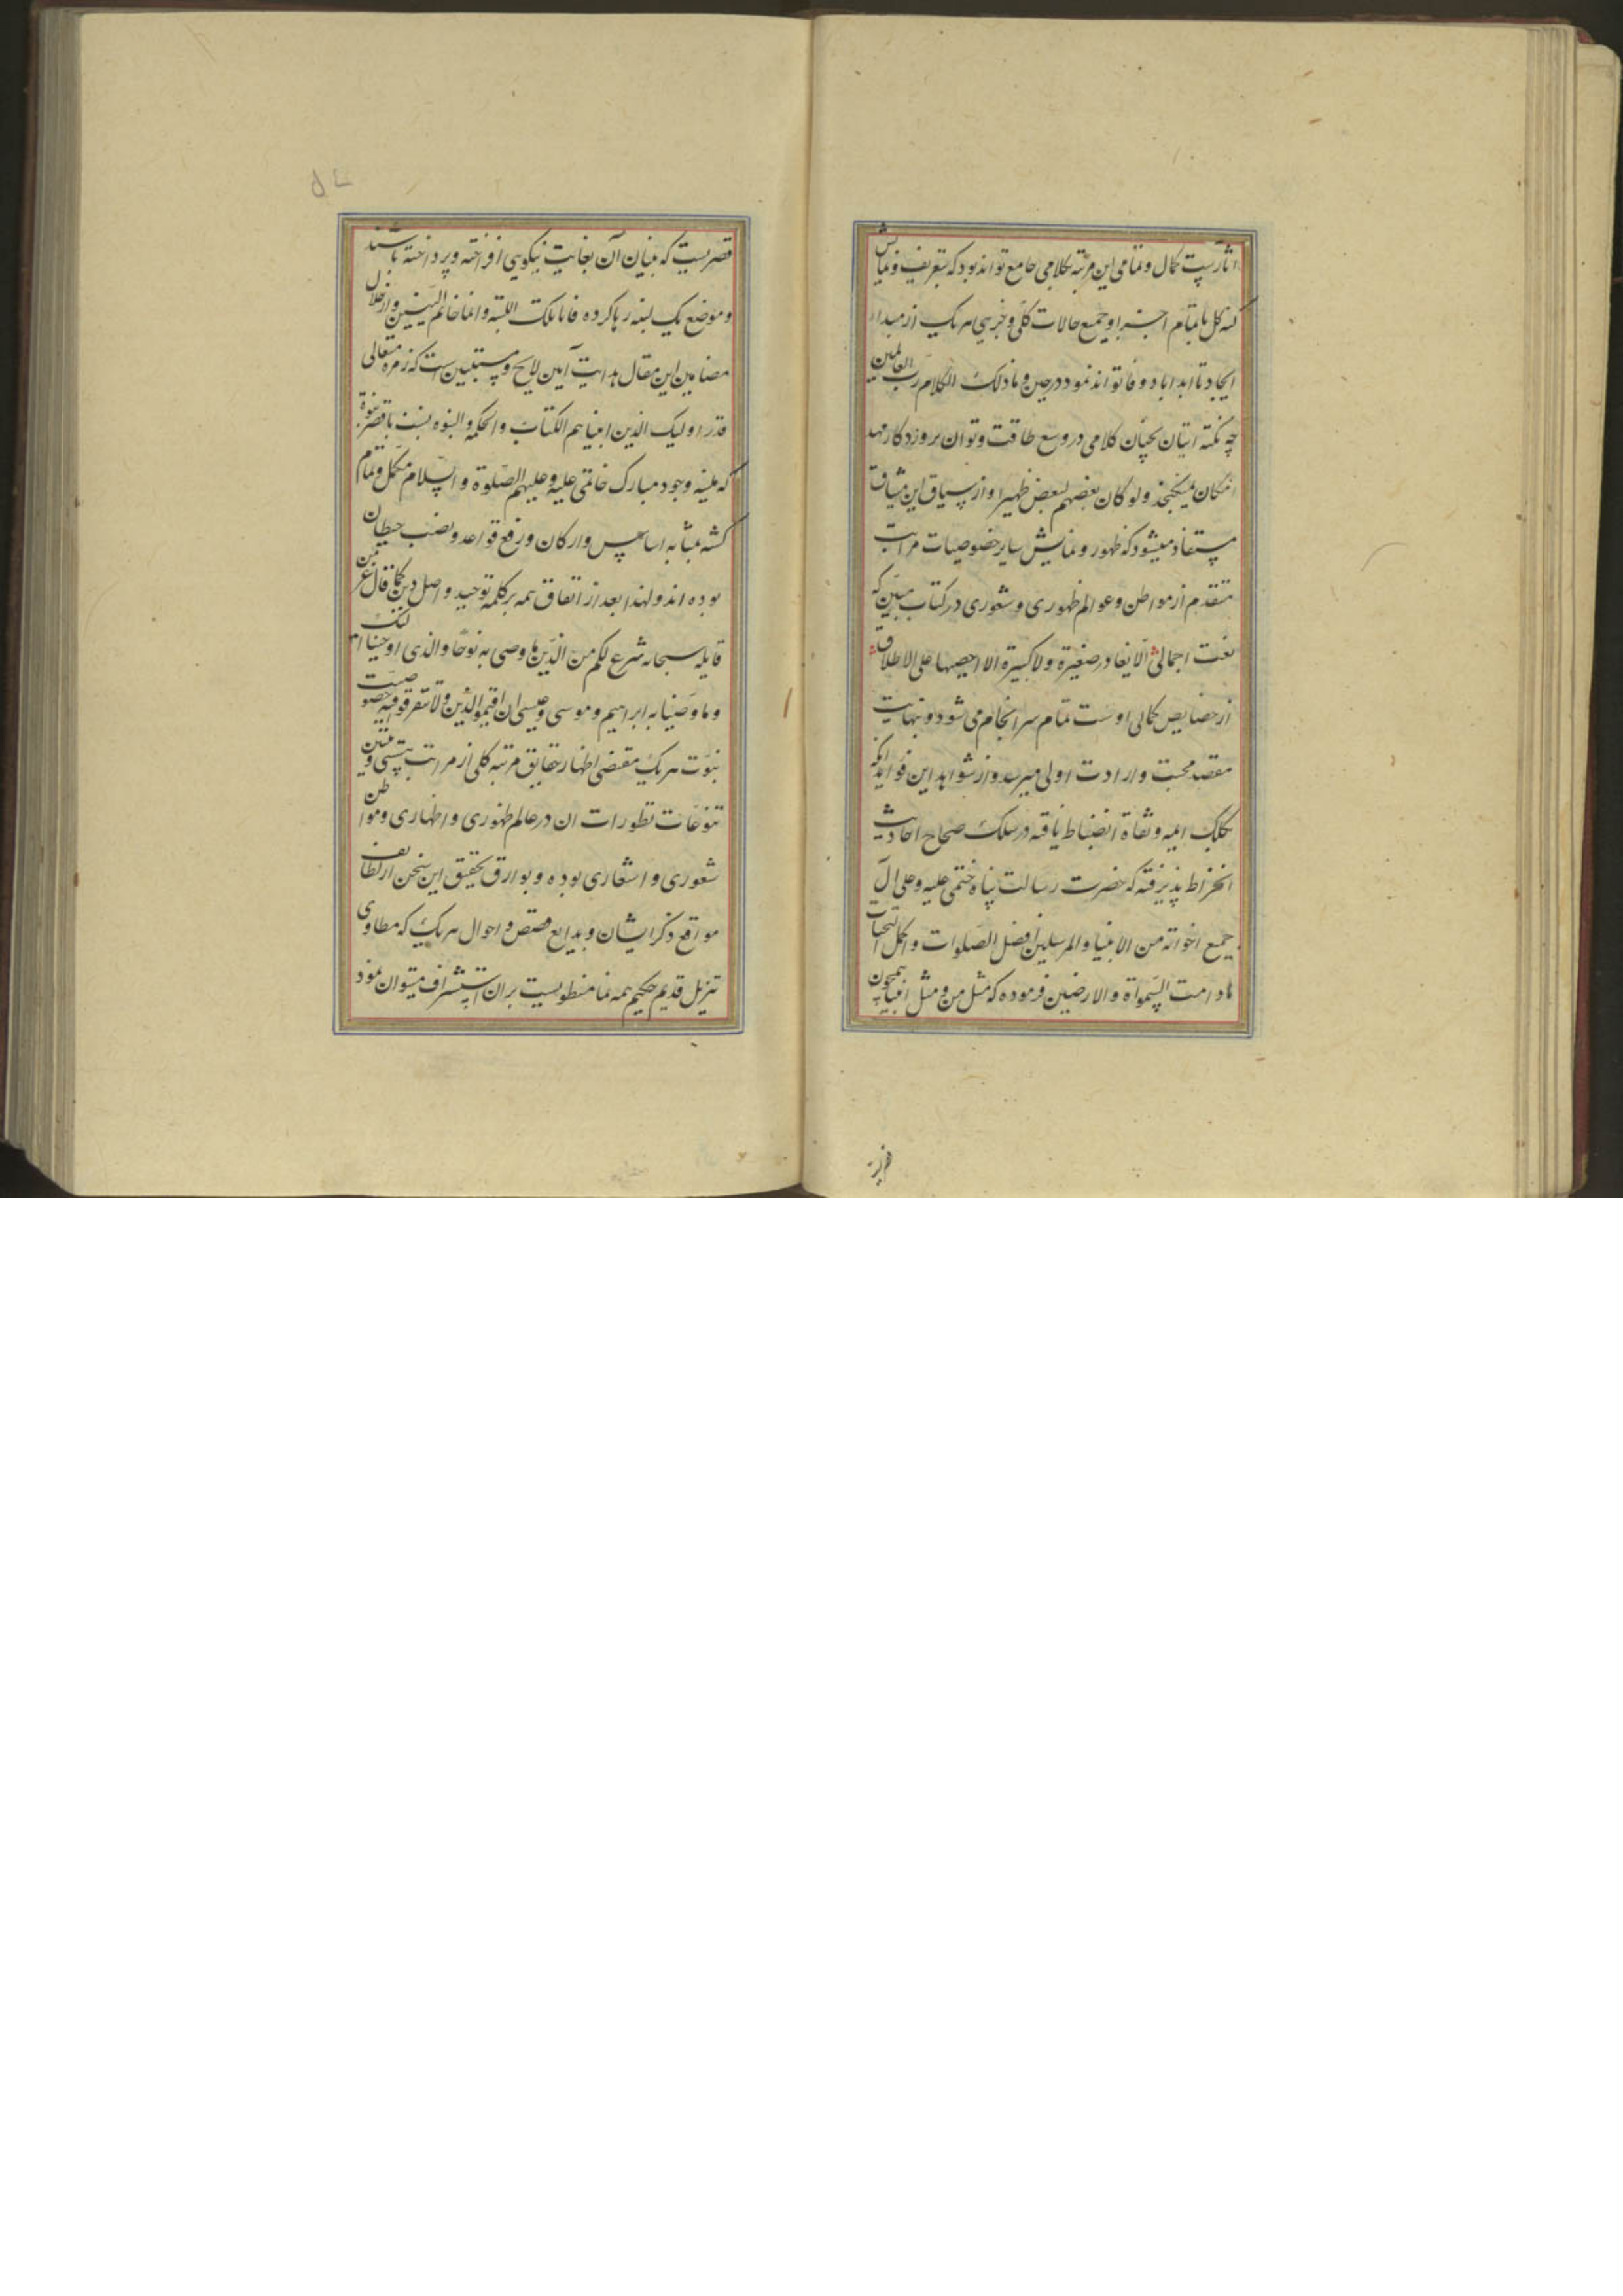 اثارست کمال و تمامی این مرتبه کلامی جامع تواند بود که بتعریف و نمایش
کنه کل بتمام اجزا و جمیع حالات کلی و جزیی هر یک از مبدا
ایجاد تا ابد اباد وفا تواند نمود در حین و ما ذلک الا کلام رب العالمین
چه نکته اتیان بچنان کلامی در وسع طاقت و توان بروزد کار مهد
امکان نمیکنجد ولو کان بعضهم لبعض ظهیرا و از سیاق این میثاق
مستفاد میشود که ظهور و نمایش سایر خصوصیات مراتب
متقدم از مواطن و عوالم ظهوری و شعوری در کتاب مبین که
نعت اجمالی لا یغادر صغیرة ولا کبیرة الا احصیها علی الاطلاق
از خصایص کمالی اوست تمام سرانجام می شود و نهایت
مقصد محبت و ارادت اولی میرسد و از شواهد این فواید آنکه
بکلک ایمه و ثقاة انضباط یافته در سلک صحاح احادیث
انخراط پذیرفته که حضرت رسالت پناه ختمی علیه و علی آل
جمیع اخوانه من الانبیا والمرسلین افضل الصلوات و اکمل التحیات
ما دامت السموات والارضین فرموده که مثل من و مثل انبیا همچون
قصریست که بنیان آن بغایت نیکویی افراخته و پرداخته باشند
و موضع یک لبنه رها کرده فانا تلک اللبنة وانا خاتم النبیین و از خلال
مضامین این مقال هدایت آیین لایح و مستبین است که زمره متعالی
قدر اولیک الذین اتیناهم الکتاب والحکم والنبوه نسبت با قصر نبوة
که بلبنه وجود مبارک خاتمی علیه و علیهم الصلوة والسلام مکمل و تمام
کشته بمثابه اساس و ارکان و رفع قواعد و نصب حیطان
بوده اند و لهذا بعد از اتفاق همه بر کلمه توحید و اصل دین کما قال عز من
قایله سبحانه شرع لکم من الدین ما وصی به نوحا والذی اوحینا الیک
وما وصینا به ابراهیم وموسی وعیسی ان اقیموا الدین ولا تتفرقوا فیه خصوصیت
نبوت هر یک مقتضی اظهار حقایق مرتبه کلی از مراتب هستی و تبیین
تنوعات تطورات ان در عالم ظهوری و اظهاری و مواطن
شعوری و اشعاری بوده و بوارق تحقیق این سخن از لطایف
مواقع ذکر ایشان و بدایع قصص و احوال هر یک که مطاوی
تنزیل قدیم حکیم همه نما منطویست بران استشراف میتوان نمود